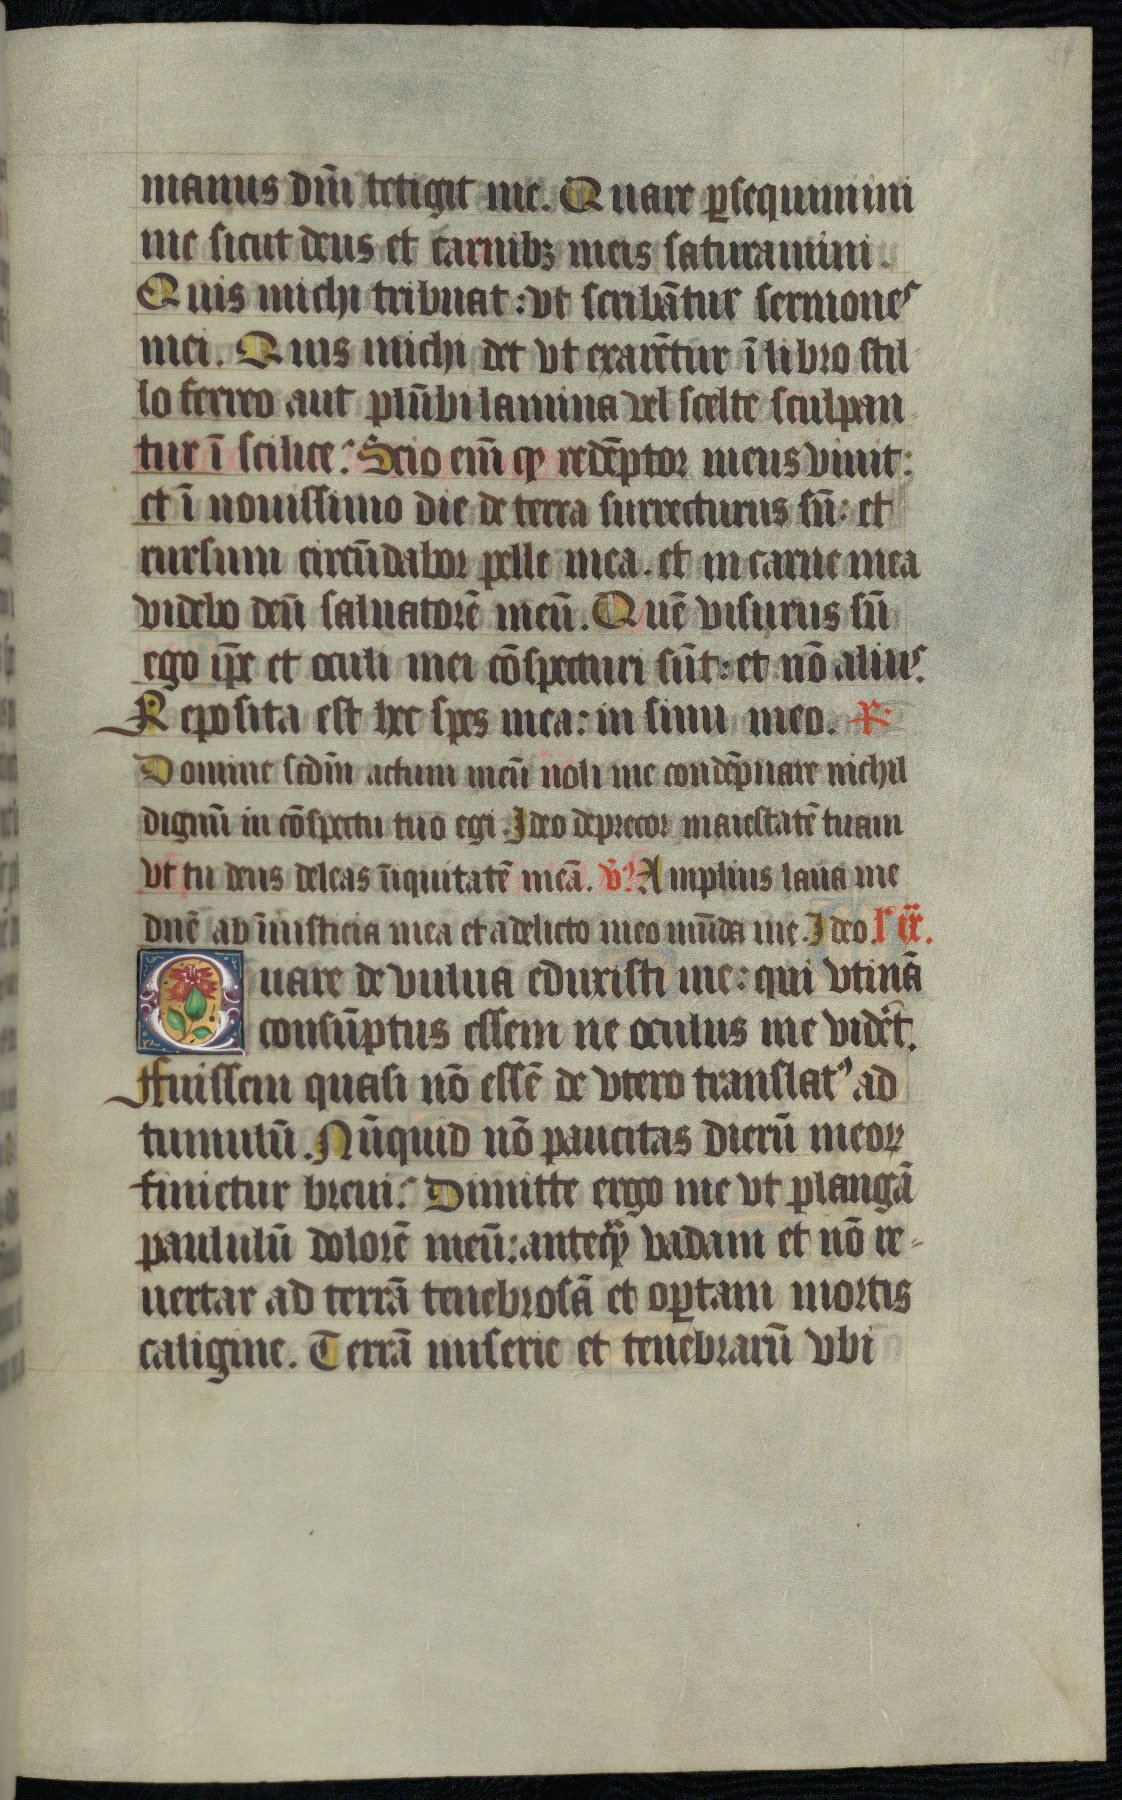 manus dm̄ tetigit me. Quare ꝑsequimini
me sicut deus et carnibꝫ meis saturamini.
Quis michi tribuat: vt scribātur sermones
mei. Quis michi det vt exarētur ī libro stil
lo ferreo aut plūbi lamina vel scelte sculpan
tur ī scilice? Scio em̄ ꝙ redēptor meus viuit:
et ī nouissimo die de terra surrecturus sū: et
rursum circūdabor pelle mea. et in carne mea
videbo deū saluatorē meū. Quē visurus sū
ego ip̄e et oculi mei cōspecturi sūt: et nō alius.
Reposita est hec spes mea: in sinu meo. ℟.
Domine scdm̄ actum meū noli me condēpnare nichil
dignū in cōspectu tuo egi. Ideo deprecor maiestatē tuam
vt tu deus deleas īiquitatē meā. ℣. Amplius laua me
dnē ab īiusticia mea et a delicto meo mūda me. Ideo. l' ix.
Quare de vulua eduxisti me: qui vtinā
consūptus essem ne oculus me videt̄.
Ffuissem quasi nō essē de vtero translatꝰ ad
tumulū. Nūquid nō paucitas dierū meoꝝ
finietur breui? Dimitte ergo me vt plangā
paululū dolorē meū: anteqꝫ̄ vadam et nō re-
uertar ad terrā tenebrosā et oꝑtam mortis
caligine. Terrā miserie et tenebrarū vbi